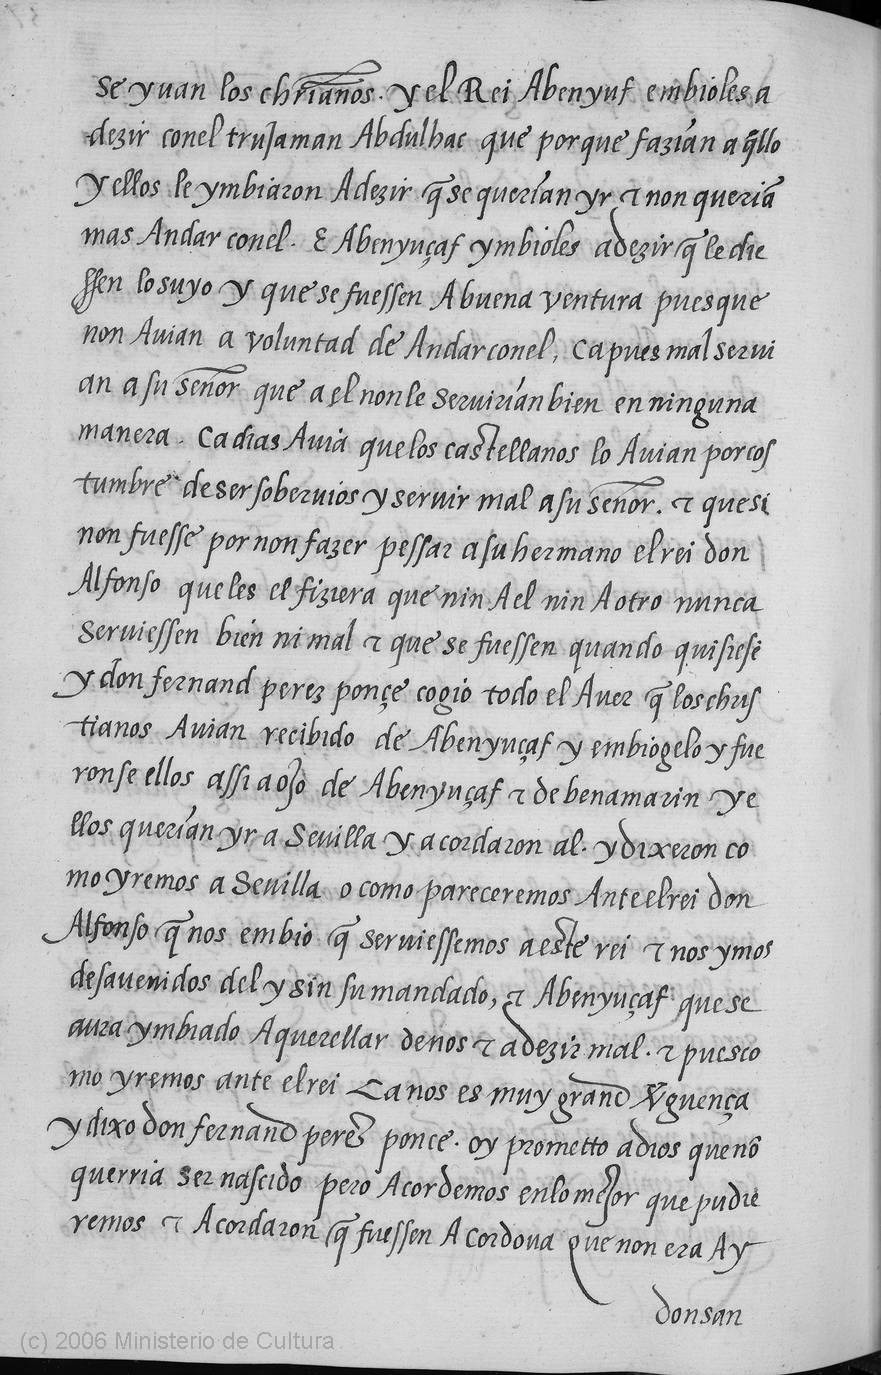 se yuan los chrianos. y el Rei Abenyuf embioles a
dezir conel trujaman Abdulhac que porque fazian a q̃llo
y ellos le ymbiaron Adezir q̃ se querian yr τ non queriã
mas Andar conel. E Abenyuçaf ymbioles adezir q̃ le die
ssen lo suyo y que se fuessen A buena ventura pues que
non Auian a voluntad de Andar conel, ca pues mal serui
an a su señor que a el non le seruirian bien en ninguna
manera. ca dias Auia que los castellanos lo Auian por cos
tumbre de ser soberuios y seruir mal a su señor. τ que si
non fuesse por non fazer pessar a su hermano el rei don
Alfonso que les el fiziera que nin A el nin A otro nunca
seruiessen bien ni mal τ que se fuessen quando quisiesẽ
y don fernand perez ponçe cogio todo el Auer q̃ los chris
tianos Auian recibido de Abenyuçaf y embiogelo y fue
ronse ellos assi a ojo de Abenyuçaf τ de benamarin y e
llos querian yr a Sevilla y acordaron al. y dixeron co
mo yremos a Sevilla o como pareceremos Ante el rei don
Alfonso q̃ nos embio q̃ seruiessemos a este rei τ nos ymos
desauenidos del y sin su mandado, τ Abenyuçaf que se
aura ymbiado A querellar de nos τ a dezir mal. τ pues co
mo yremos ante el rei Ca nos es muy grand Vguença
y dixo don fernand perez ponce. oy prometto a dios que nõ
querria ser nascido pero Acordemos en lo mejor que pudie
remos τ Acordaron q̃ fuessen A cordoua que non era Ay
don san
(c) 2006 Ministerio de Cultura